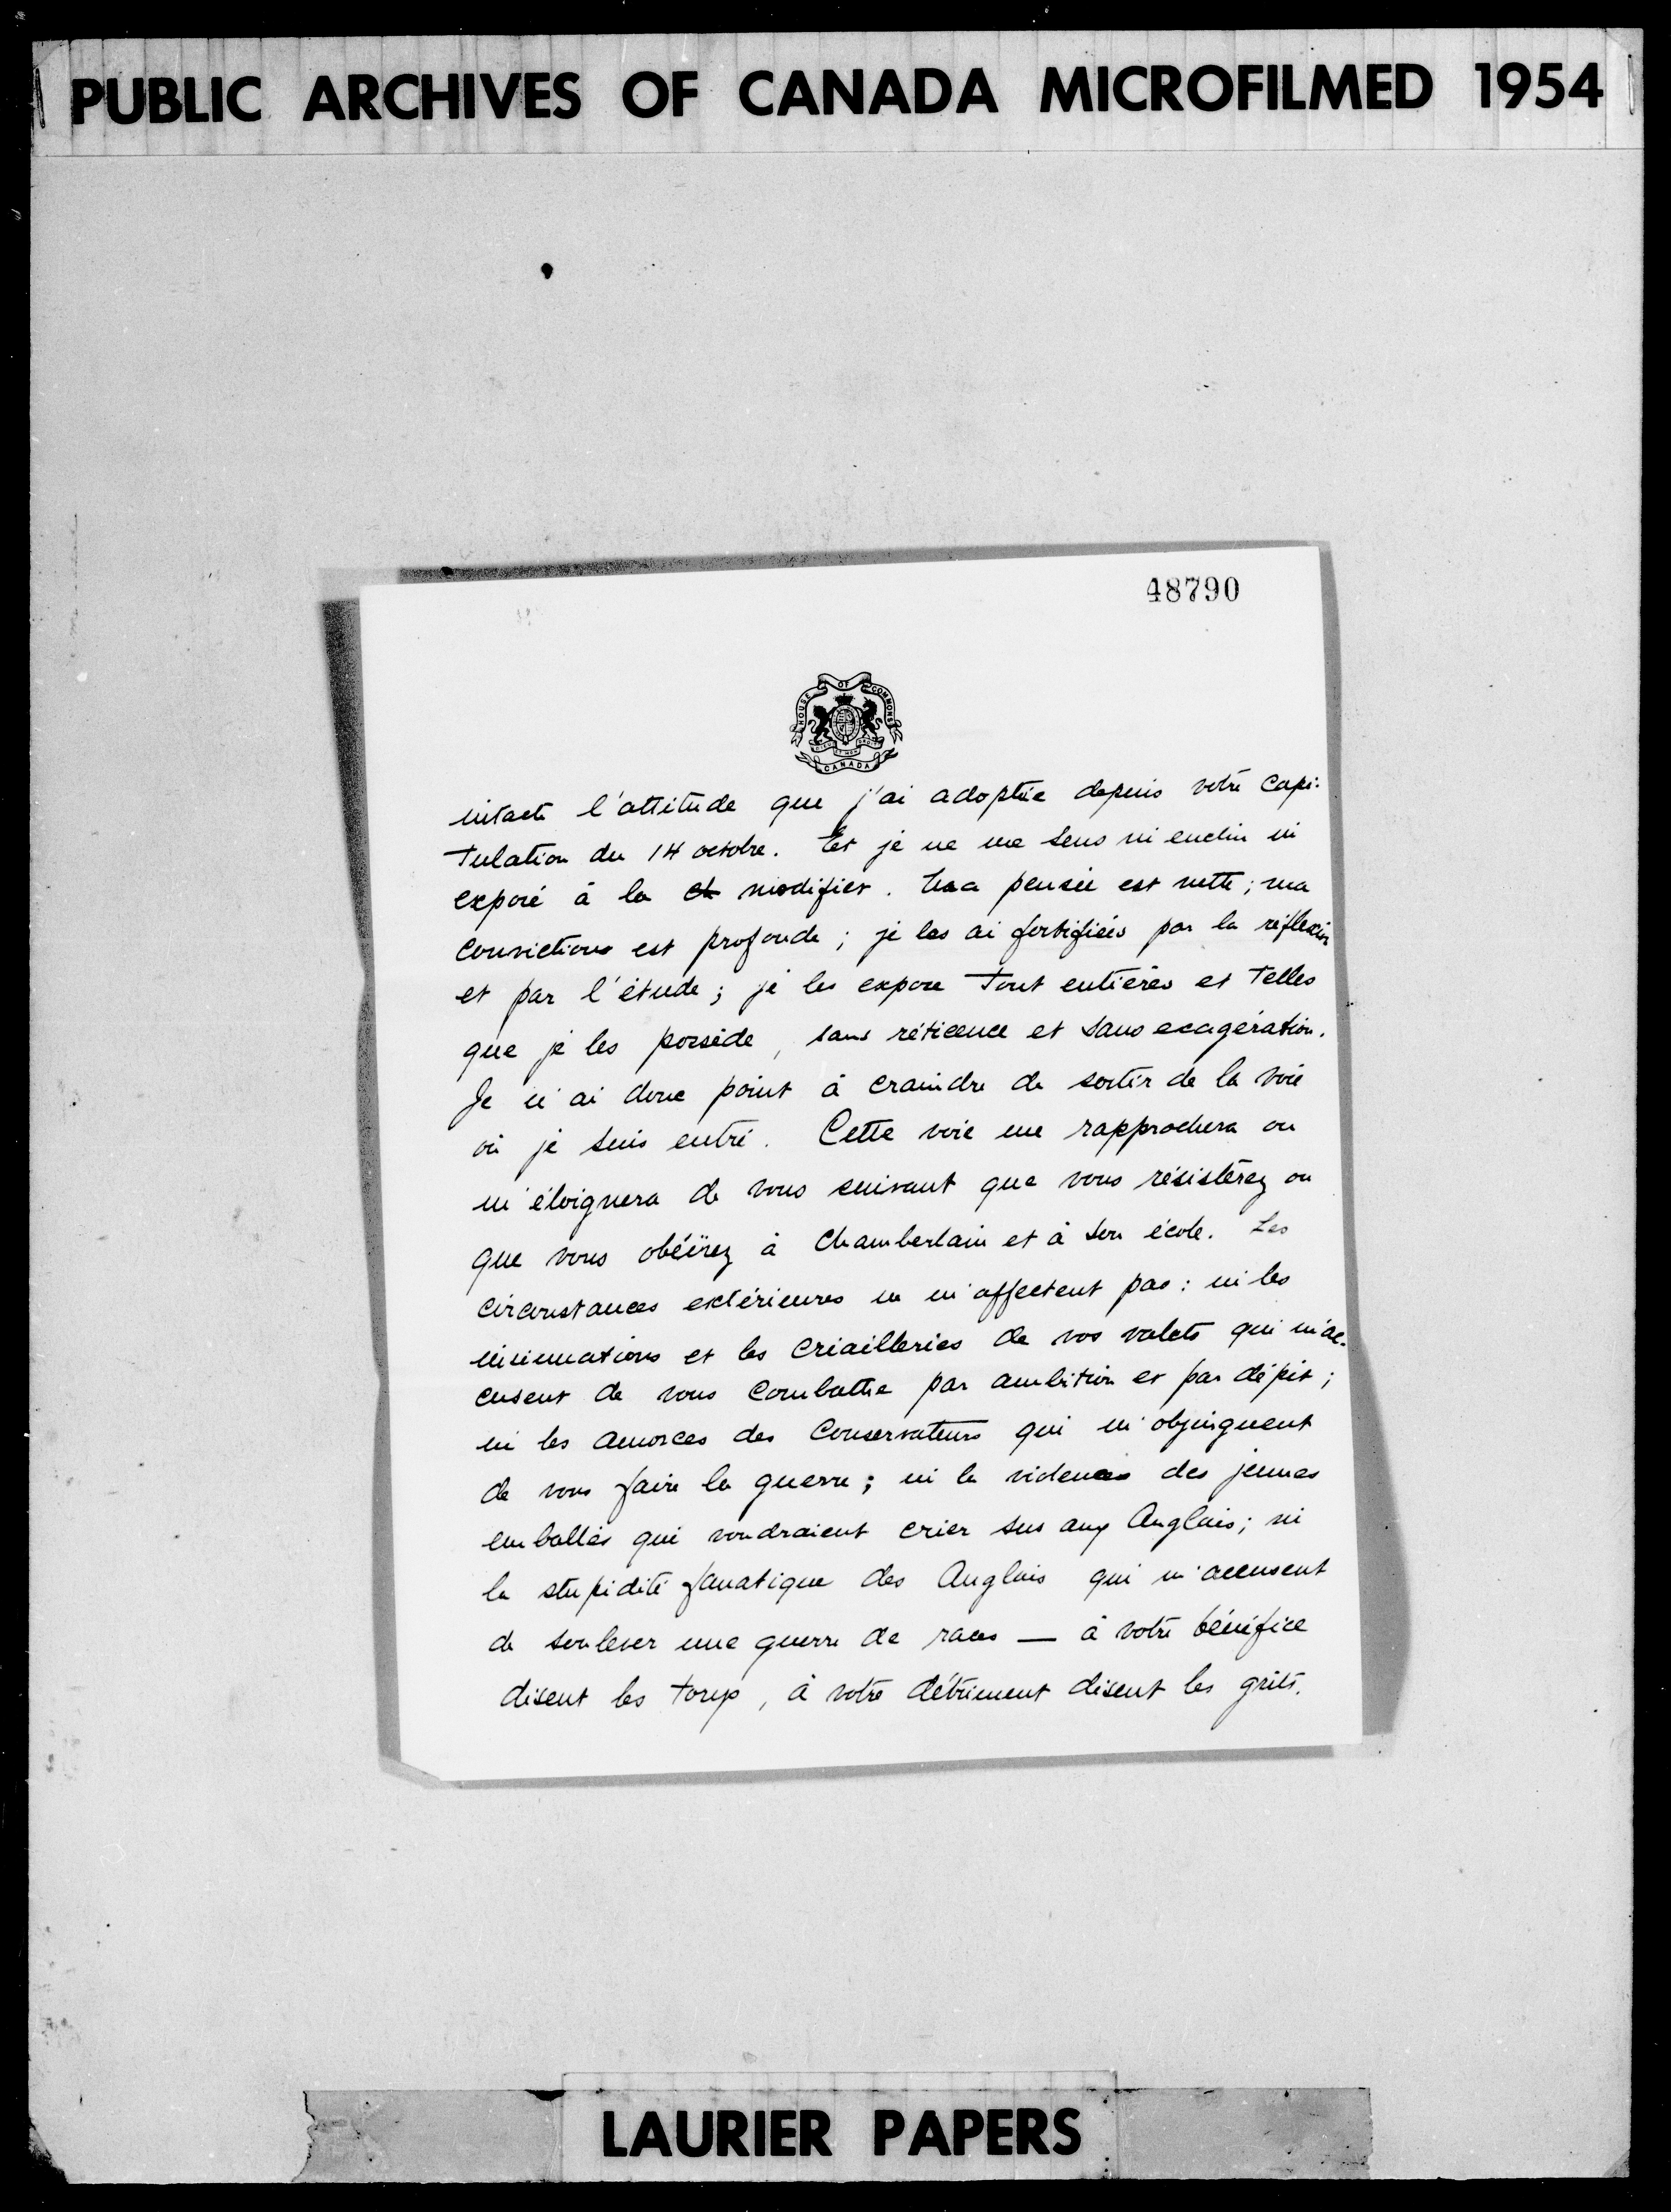 PUBLIC ARCHIVES OF CANADA MICROFILMED 1954
48790
HOUSE OF COMMONS
CANADA
intacte l'attitude que j'ai adoptée depuis votre capi-
tulation du 14 octobre. Et je ne me sens ni enclin ni
exposé à la modifier. Ma pensée est nette; ma
conviction est profonde; je les ai fortifiées par la réflexion
et par l'étude; je les expose tout entières et telles
que je les possède, sans réticence et sans exagération.
Je n'ai donc point à craindre de sortir de la voie
où je suis entré. Cette voie me rapprochera ou
m'éloignera de vous suivant que vous résisterez ou
que vous obéïrez à Chamberlain et à son école. Les
circonstances extérieures ne m'affectent pas: ni les
insinuations et les criailleries de vos valets qui m'ac-
cusent de vous combattre par ambition et par dépit;
ni les amorces des Conservateurs qui m'objurguent
de vous faire la guerre; ni la violence des jeunes
emballés qui voudraient crier sus aux Anglais; ni
la stupidité fanatique des Anglais qui m'accusent
de soulever une guerre de races — à votre bénéfice
disent les torys, à votre détriment disent les grits.
LAURIER PAPERS